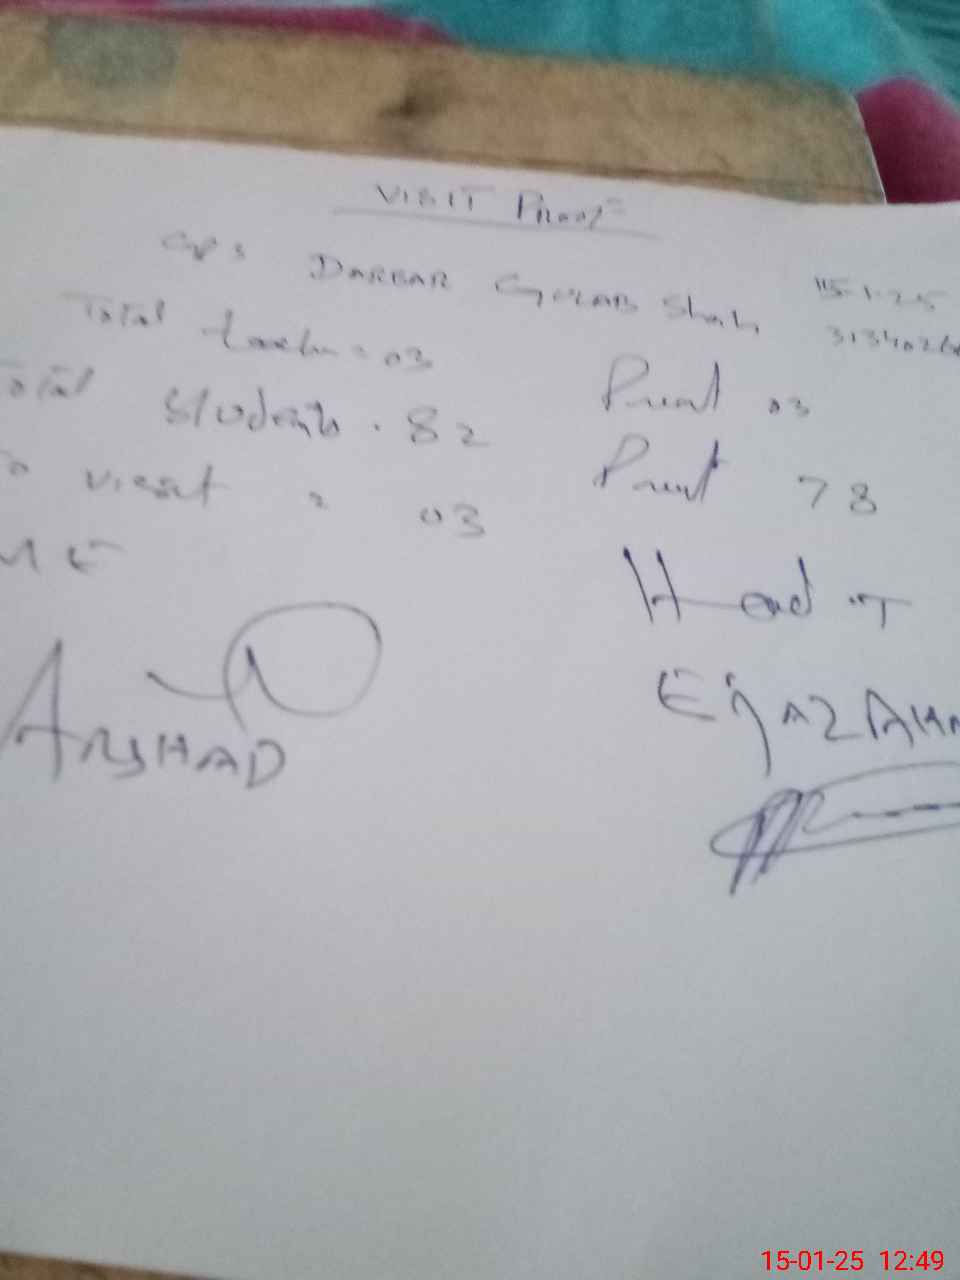 VISIT Proof
GPS DARBAR GULAB Shah 15-1-25
Total teacher = 03 3134026
Total Students . 82 Present 03
visit = 03 Present 78
ME Head T
ARSHAD EIJAZ AHM
15-01-25 12:49